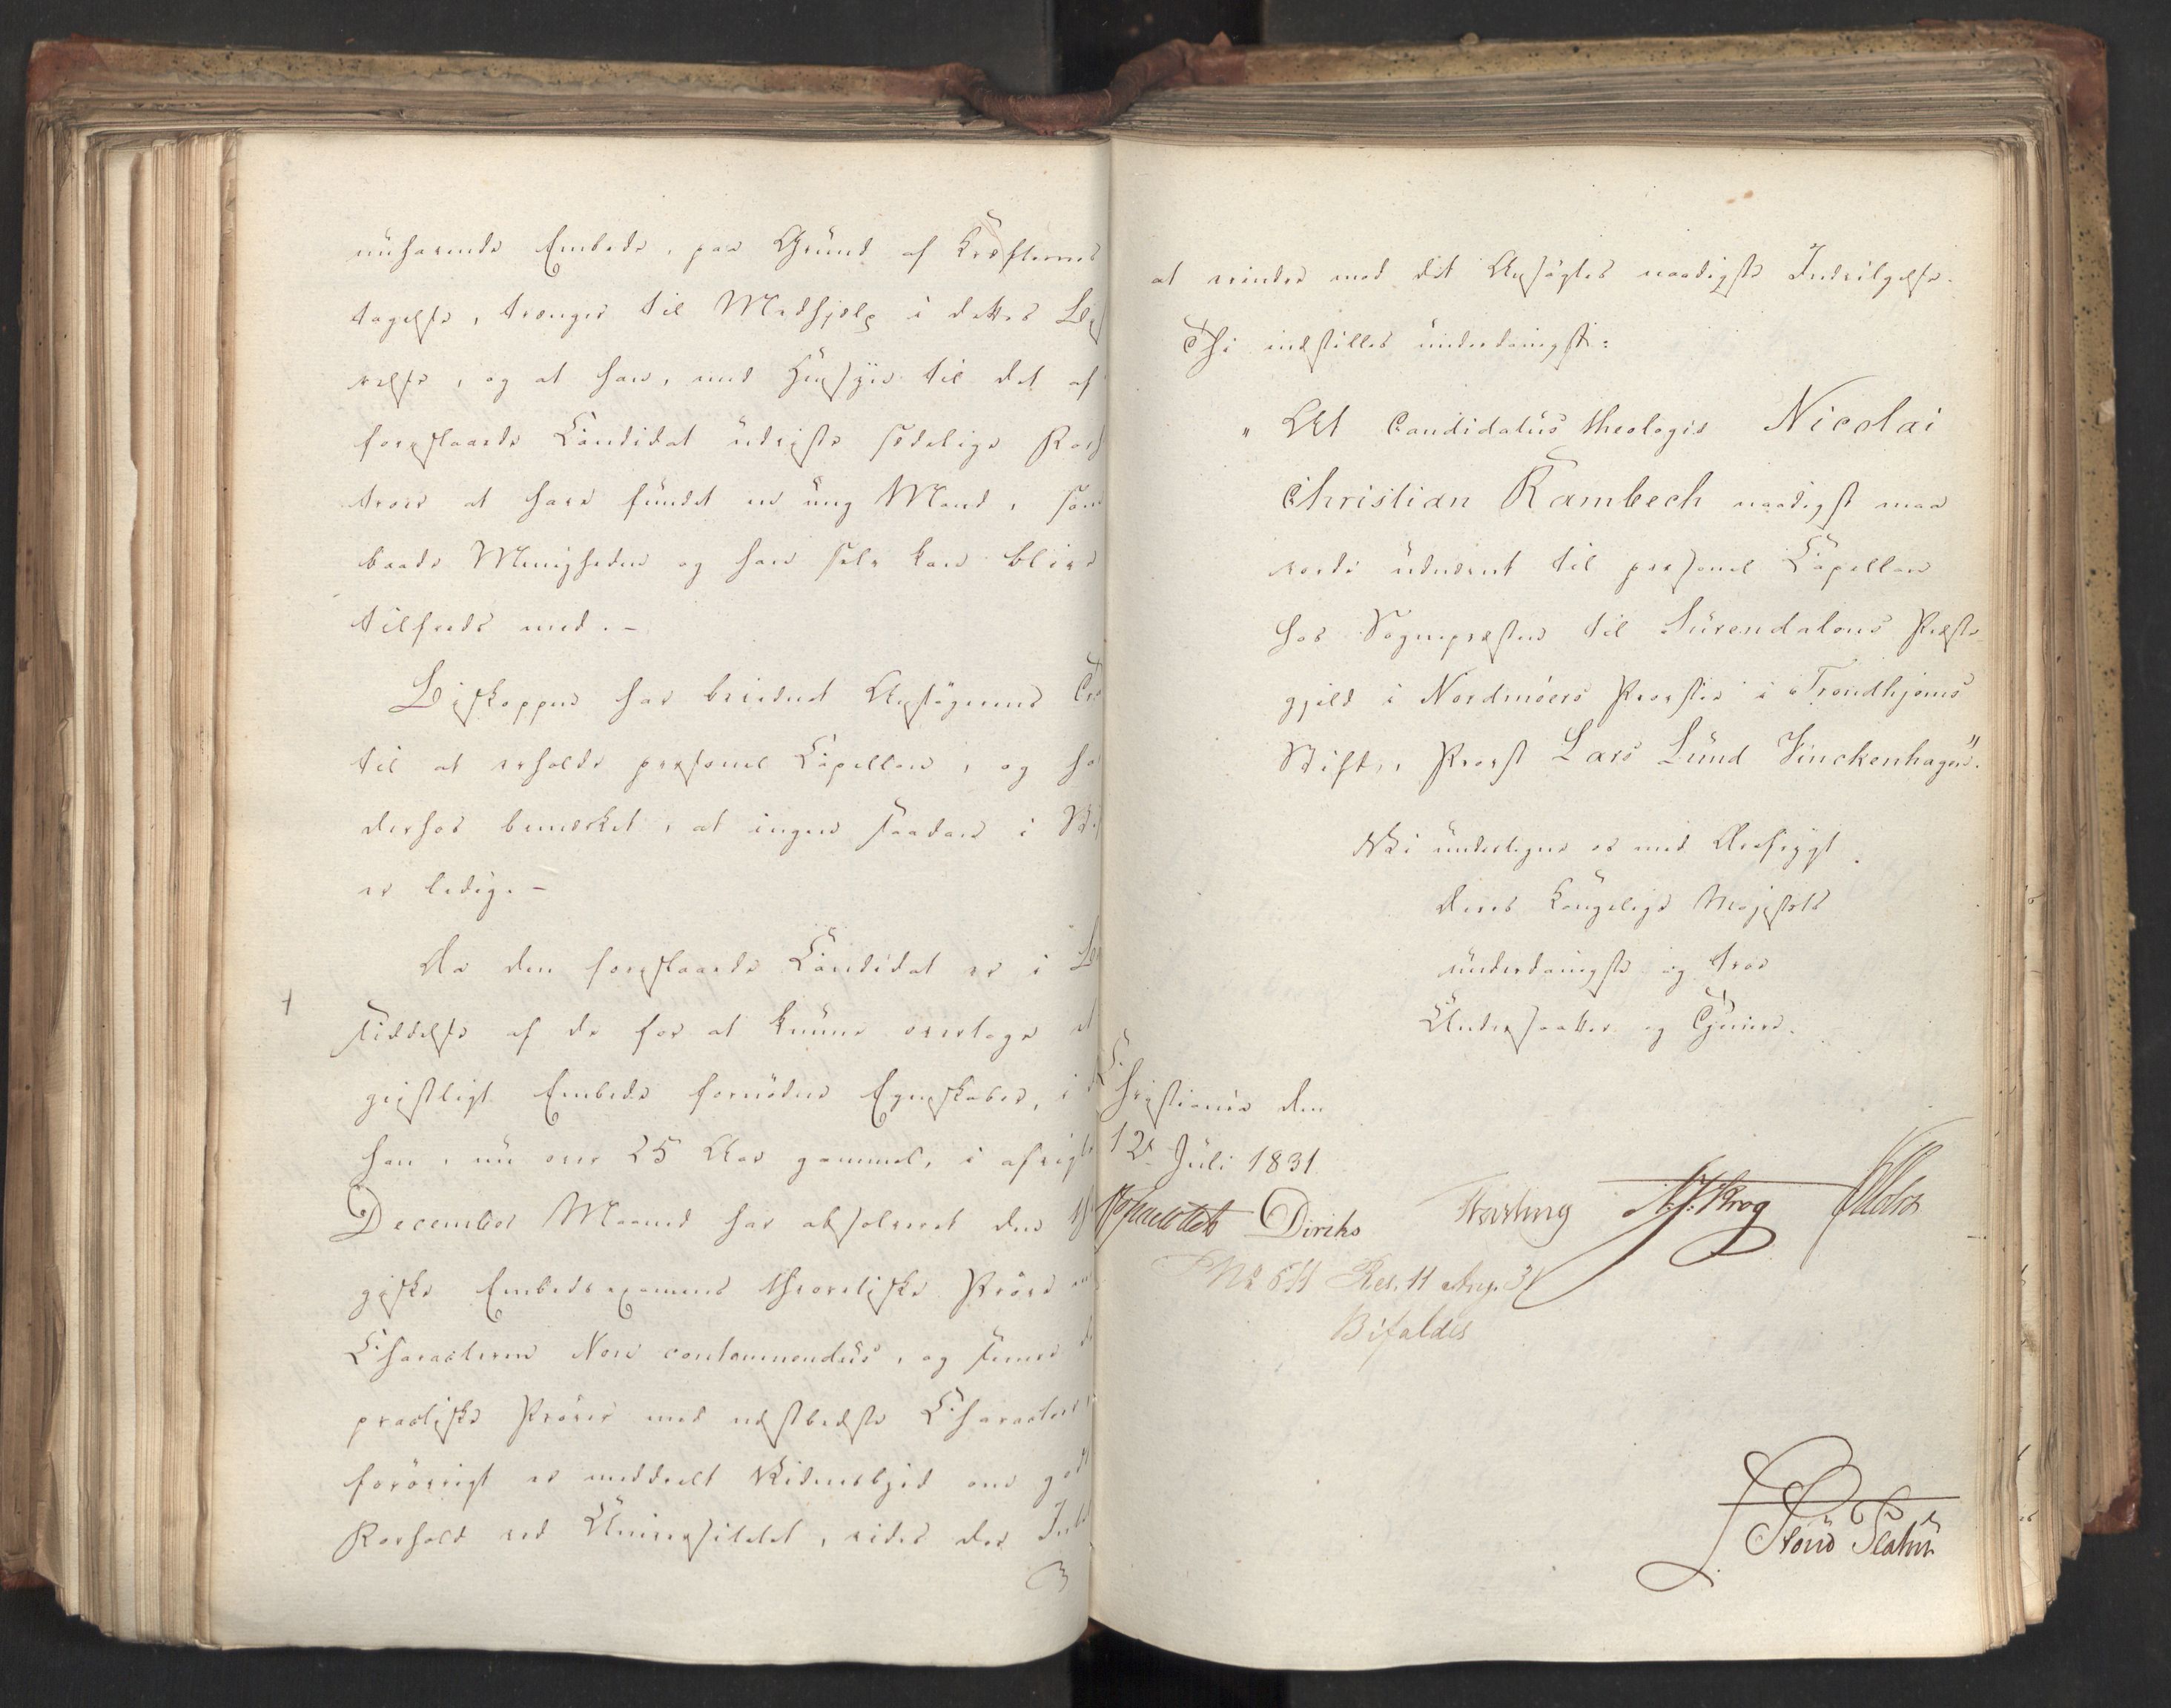 nuhavende Embede, paa Grund af Kræfternes
tagelse, trænger til Medhjelp i dettes Be
relse, og at han, med Hensyn til det af
foreslaaede Candidat udviste sædelige For
troer at have fundet en ung Mand, som
baade Menigheden og han selv kan blive
tilfreds med. -
Biskoppen har bevidnet Ansøgerens Tr
til at erholde personel Capellan, og ha
derhos bemærket, at ingen saadan i St
er ledig. -
Da den foreslaaede Candidat er i Be
siddelse af de for at kunne overtage et
geistligt Embede fornødne Egenskaber, i d
han, nu over 25 Aar gammel, i afvigte
December Maaned har absolveret den th
giske Embedsexamens theoretiske Prøve m
Characteren Non contemnendus, og senere d
practiske Prøver med næstbedste Character
forøvrigt er meddeelt Vidnesbyrd om godt
Forhold ved Universitetet, vides der Intet
at erindre mod det Ansøgtes naadigste Indvilgelse.
Thi indstilles underdanigst:
" At Candidatus theologiæ Nicolai
Christian Rambech naadigst maa
vorde udnævnt til personel Capellan
hos Sognepræsten til Surendalens Præste-
gjeld i Nordmøers Provstie i Trondhjems
Stift, Provst Lars Lund Finckenhagen".
Vi undertegne os med Ærefrygt
Deres Kongelige Majestæts
underdanigste og troe
Undersaatter og Tjenere.
Christiania den
12te Juli 1831.
Diriks
N. J. Krog
No 511 Res. 11 Aug. 31
Bifaldes